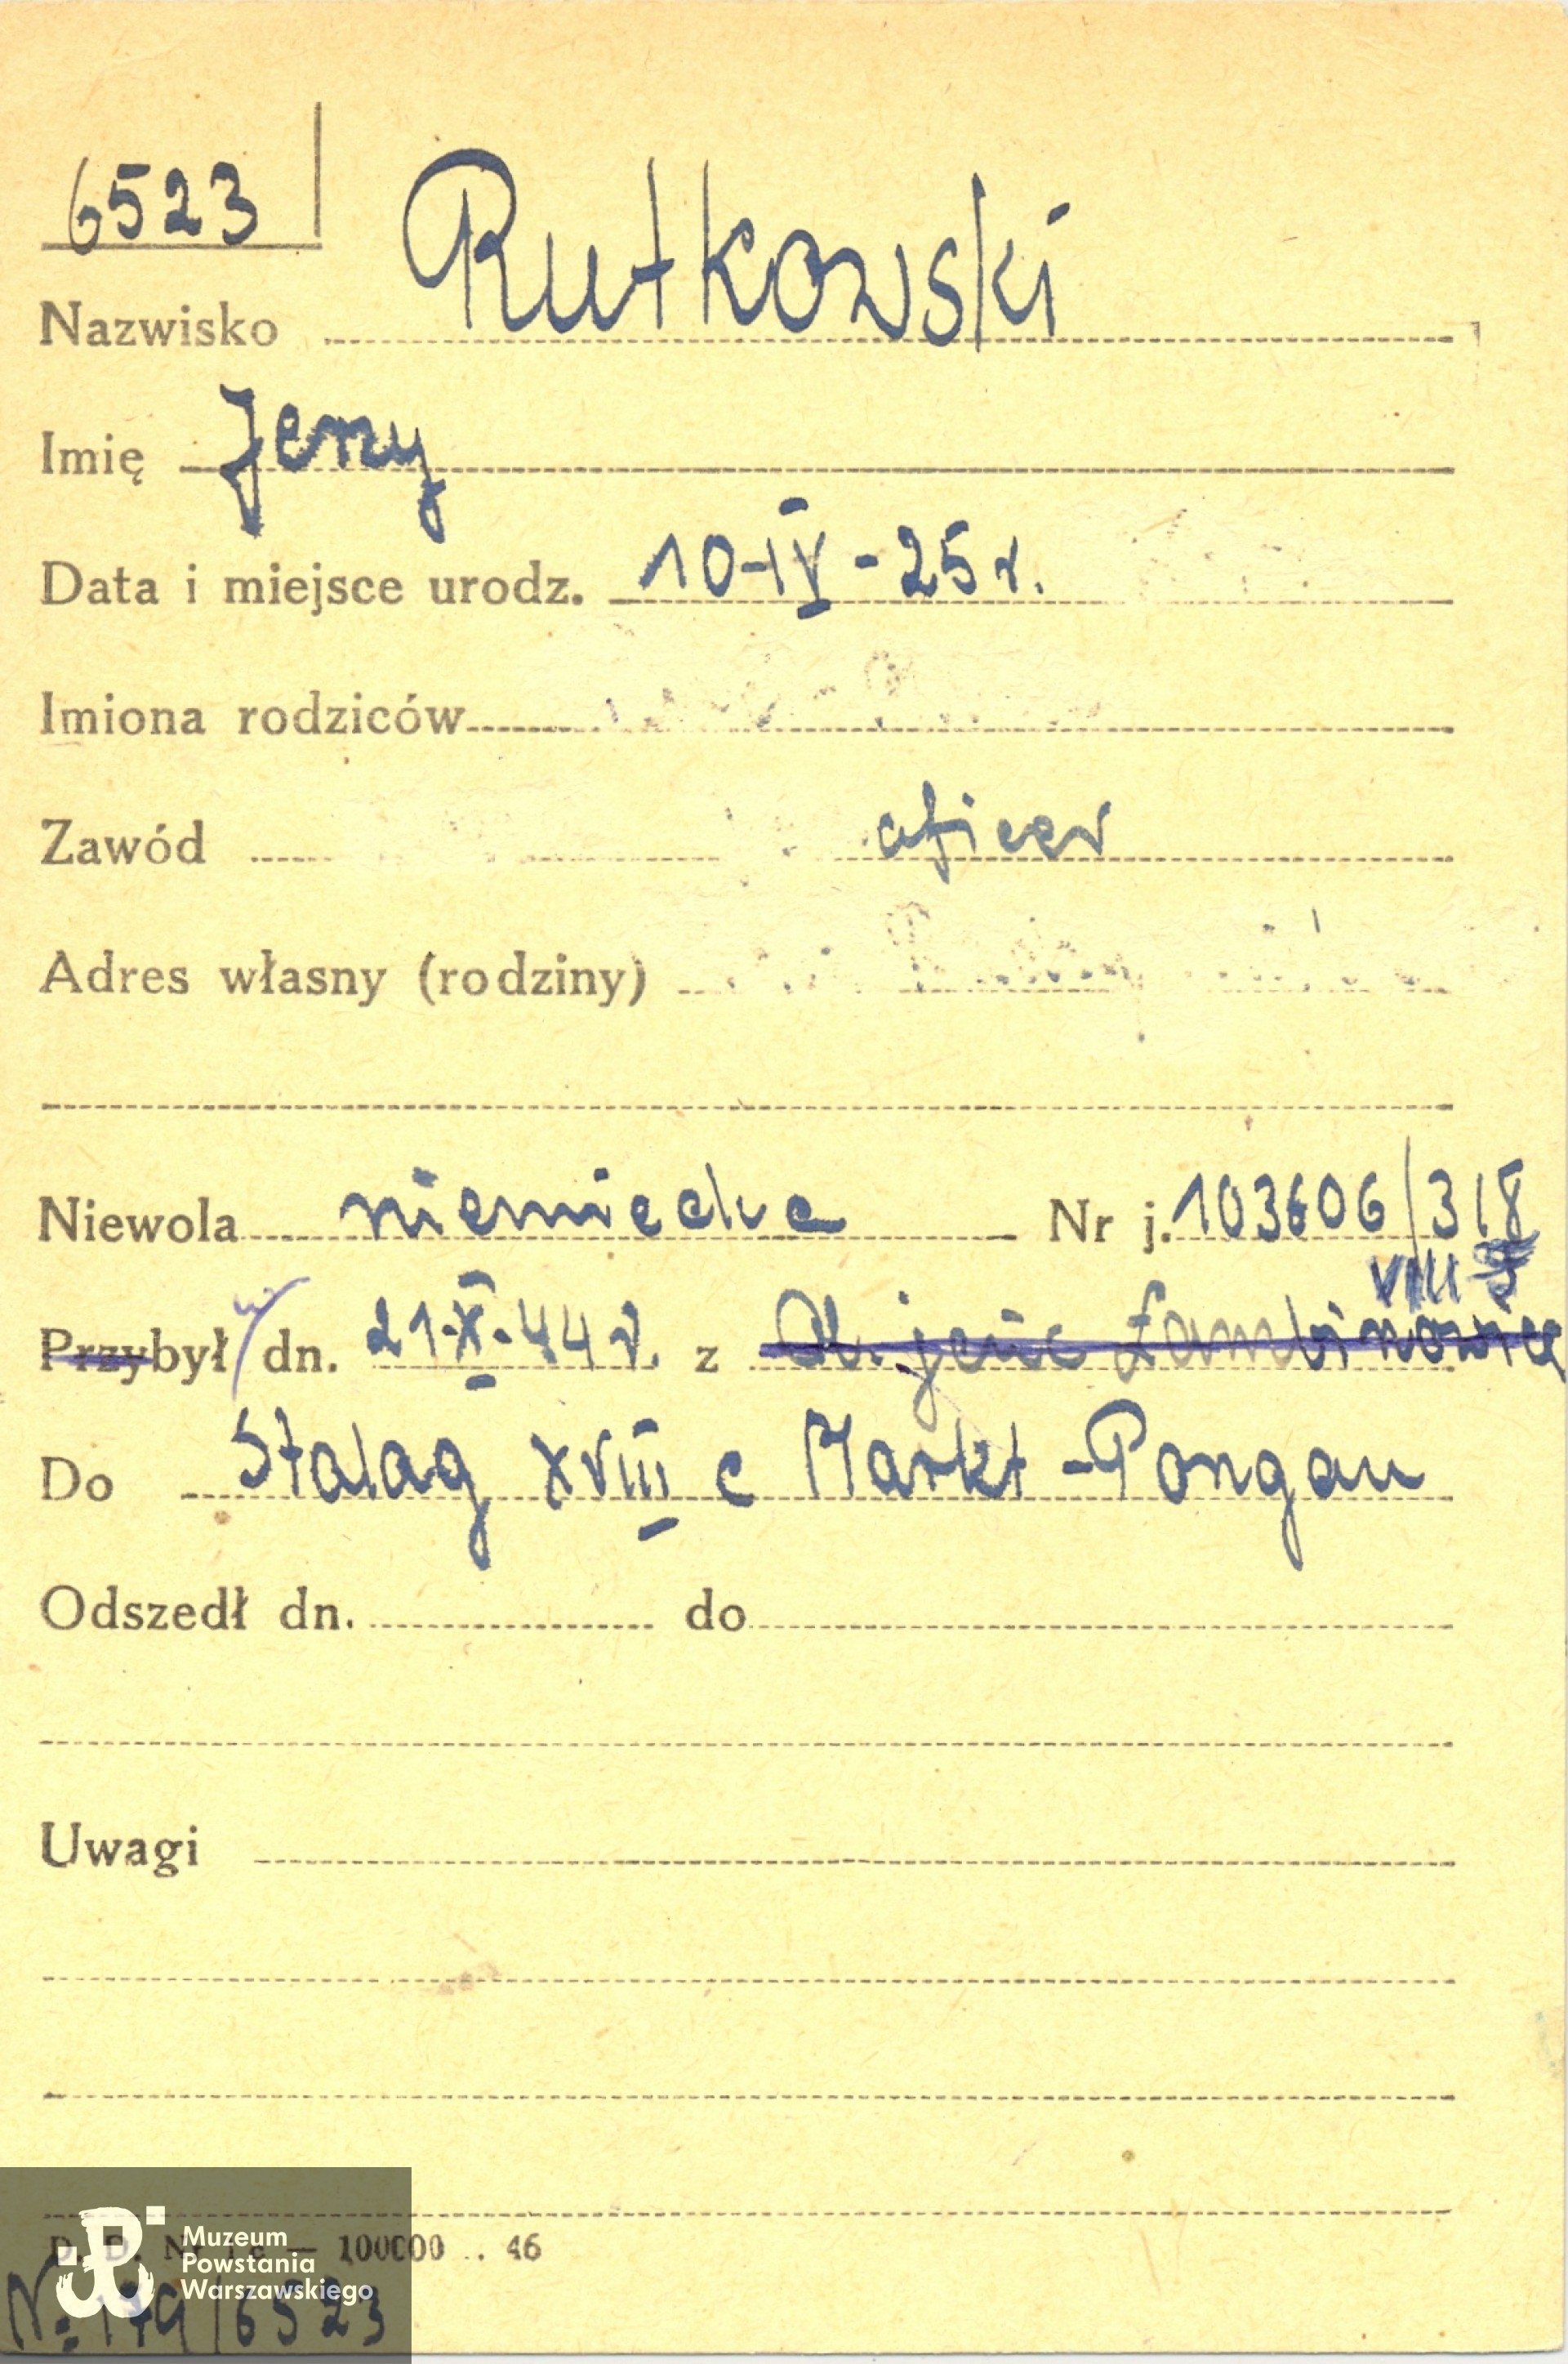 6523
Nazwisko Rutkowski
Imię Jerzy
Data i miejsce urodz. 10-IV-25 r.
Imiona rodziców
Zawód oficer
Adres własny (rodziny)
Niewola niemiecka Nr j. 103606/318
VIII
Przybył w dn. 21-X-44 r. z Ob. jeńc Łambinowice
Do Stalag XVIII C Markt-Pongau
Odszedł dn. do
Uwagi
D. D. 100000 46
Muzeum
Powstania
Warszawskiego
№ 179/6523